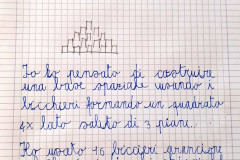 Io ho pensato di costruire
una base spaziale usando i
bicchieri formando un quadrato
4x lato salito di 3 piani.
Ho usato 16 bicchieri arancione